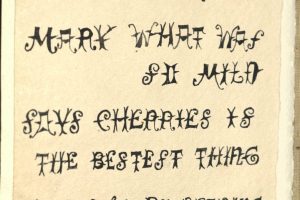 MARK WHAT WAS
SO MILD
SAYS CHERRIES IS
THE BESTEST THING